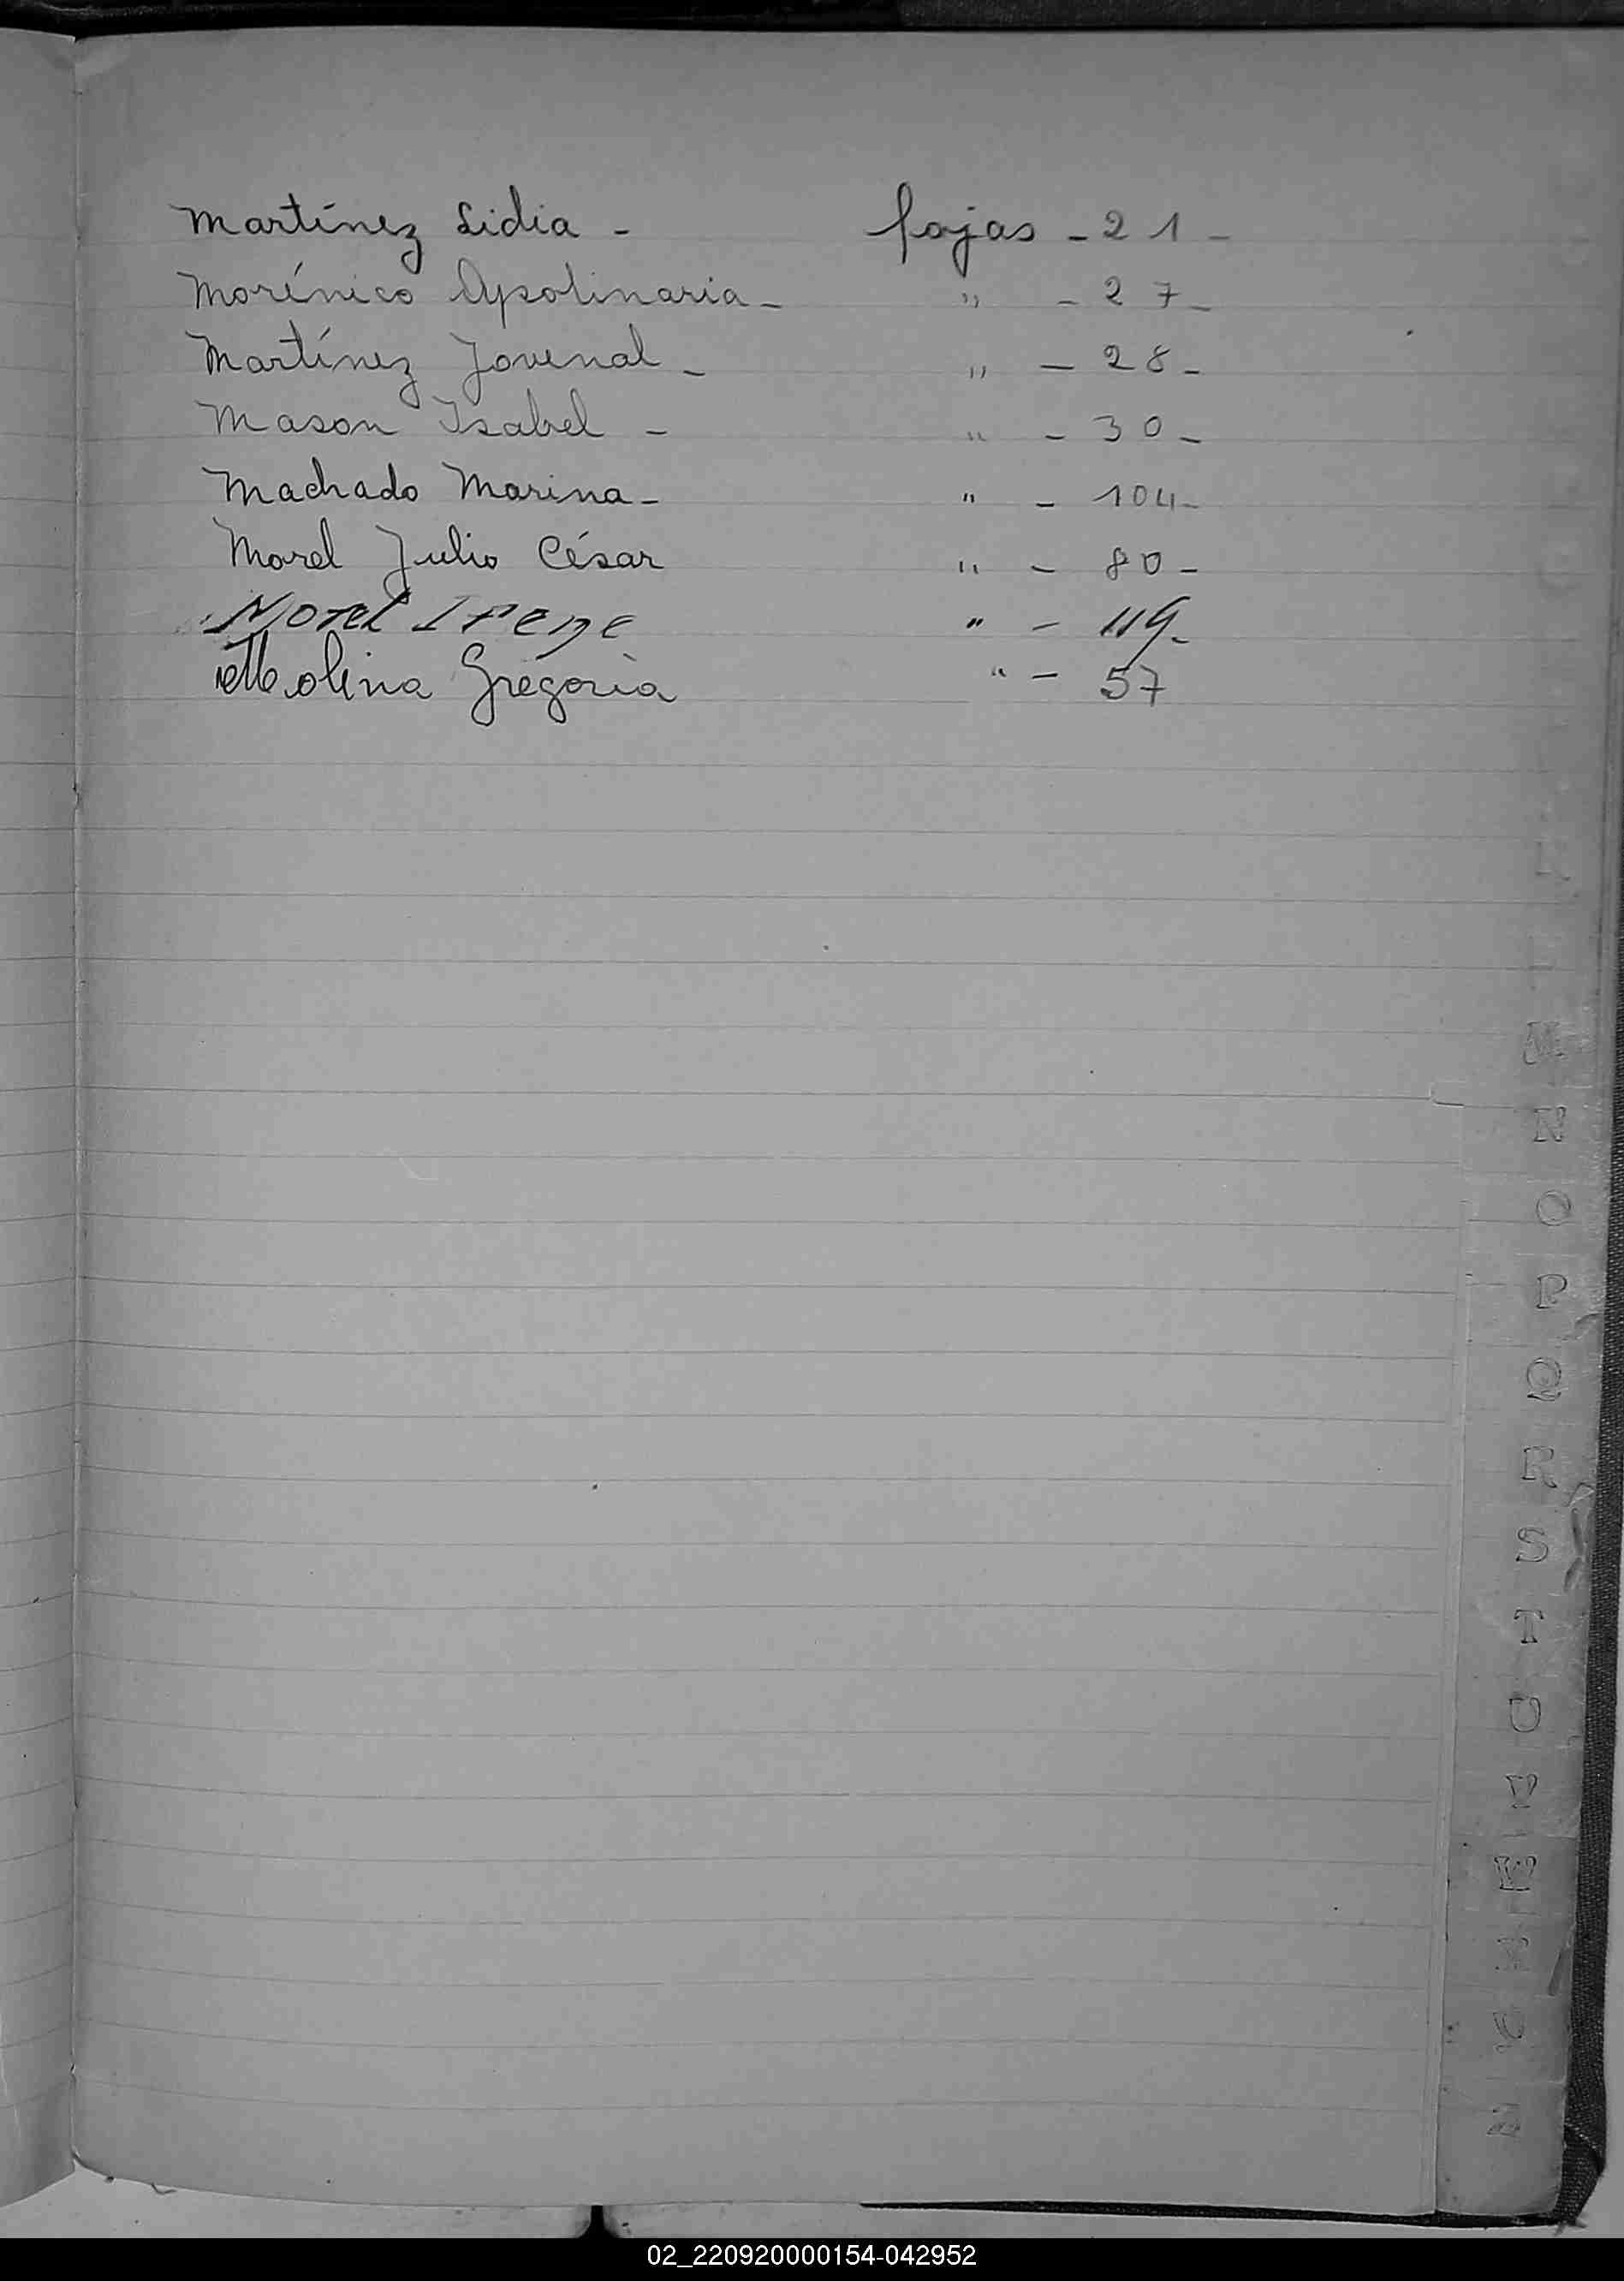 Martínez Lidia - fojas - 21 -
Morínico Apolinaria - " - 27 -
Martínez Jovenal - " - 28 -
Mason Isabel - " - 30 -
Machado Marina - " - 104 -
Morel Julio César " - 80 -
Morel Irene " - 119 -
Molina Gregoria " - 57
L
M
N
O
P
Q
R
S
T
U
V
W
X
Y
Z
02_220920000154-042952